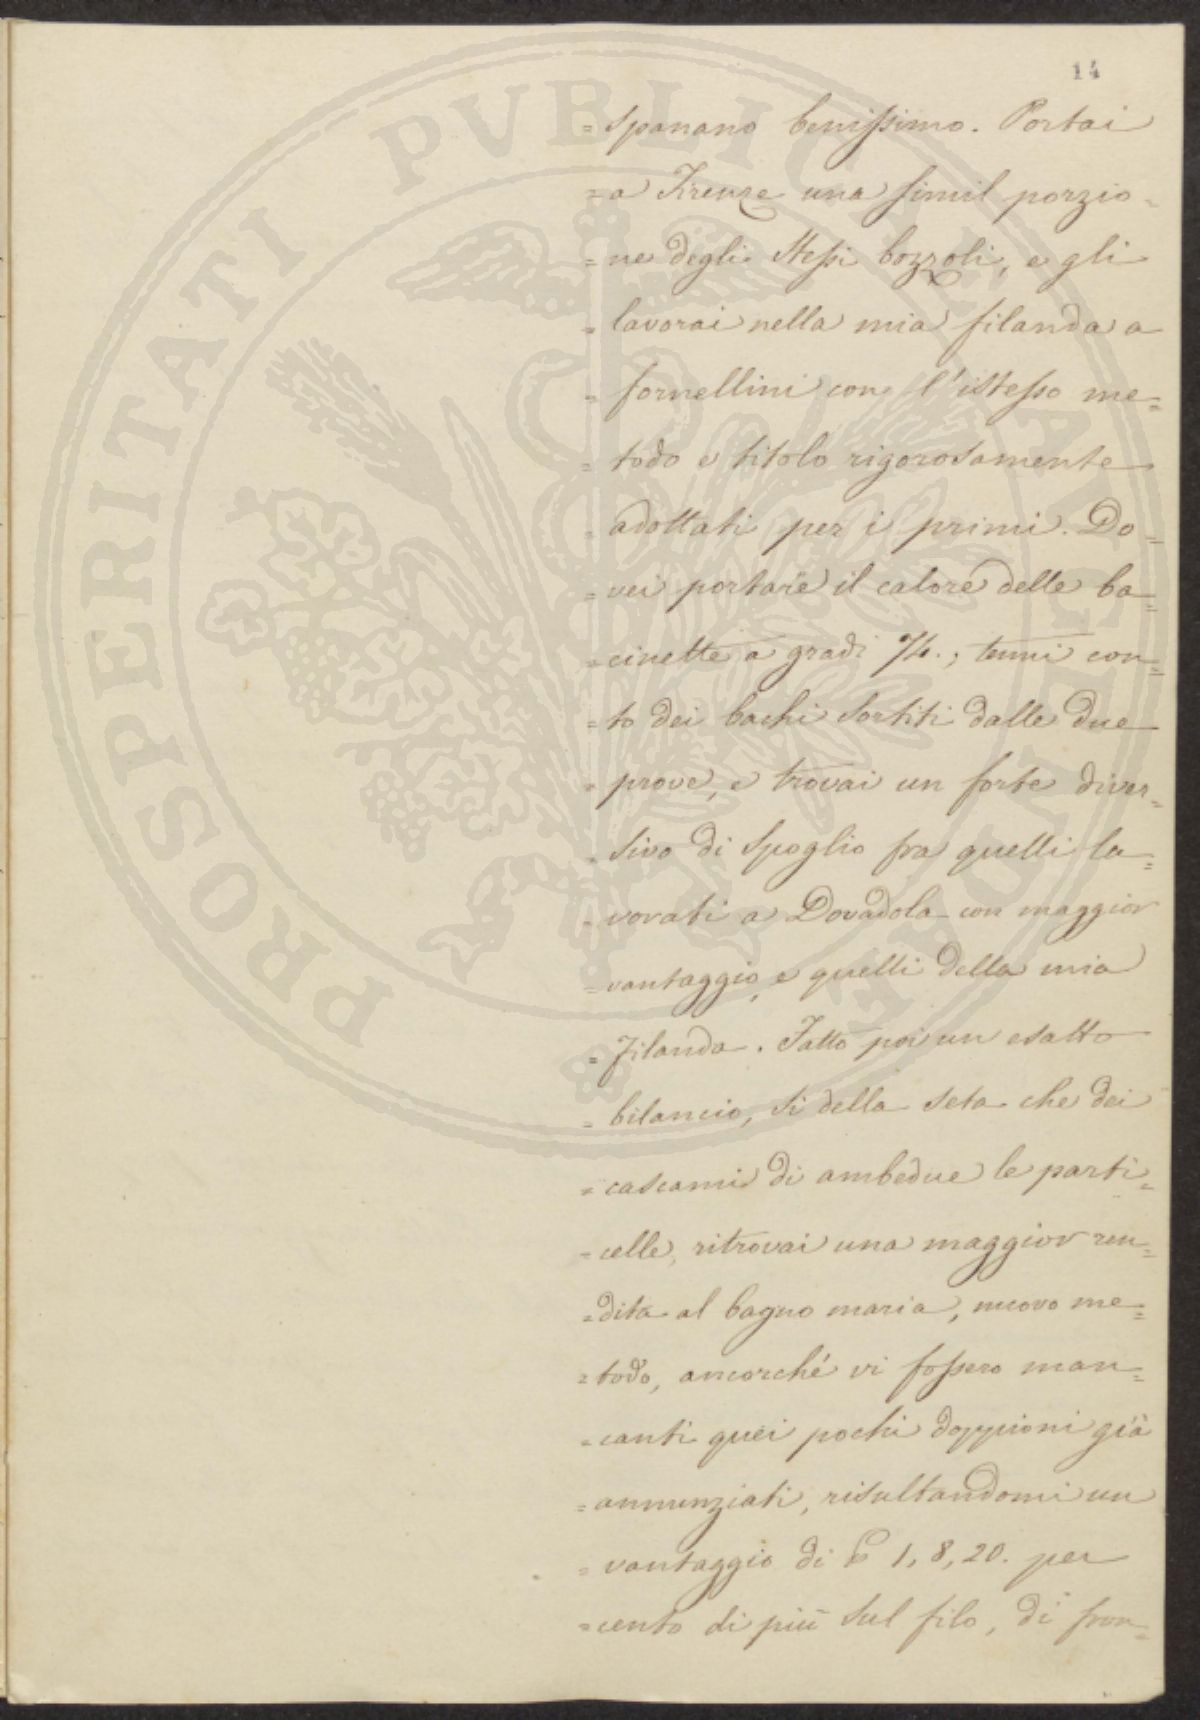 14
= spanano benissimo. Portai
= a Firenze una simil porzio=
= ne degli stessi bozzoli, e gli
= lavorai nella mia filanda a
= fornellini con l'istesso me=
= todo e titolo rigorosamente
= adottati per i primi. Do=
= vei portare il calore delle ba=
= cinelle a gradi 74., tenni con=
= to dei bachi sortiti dalle due
= prove, e trovai un forte diver=
= sivo di spoglio fra quelli la=
= vorati a Dovadola con maggior
= vantaggio, e quelli della mia
= Filanda. Fatto poi un esatto
= bilancio, sì della seta che dei
= cascami di ambedue le parti=
= celle, ritrovai una maggior ren=
= dita al bagno maria, nuovo me=
= todo, ancorché vi fossero man=
= canti quei pochi doppioni già
= annunziati, risultandomi un
= vantaggio di 1, 8, 20. per
= cento di più sul filo, di fron=
PROSPERITATI PVBLICAE AVGENDAE